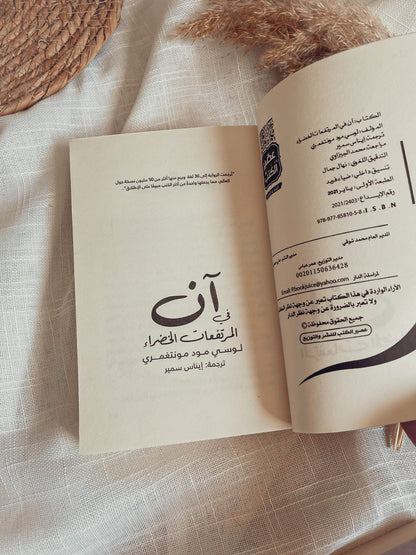 الكتاب: آن في المرتفعات الخضراء
المؤلف: لوسي مود مونتغمري
ترجمة: إيناس سمير
مراجعة: محمد الجيزاوي
التدقيق اللغوي: نهال جمال
تنسيق داخلي: ضياء فريد
الطبعة الأولى: يناير 2021
رقم الإيداع: 2021/2023
978-977-85810-5-8 :I.S.B.N
المدير العام: محمد شوقي
مدير التوزيع: عمر عباس
00201150636428
لمراسلة الدار
Email:PBookjuice@yahoo.com
الآراء الواردة في هذا الكتاب تعبر عن وجهة نظر
ولا تعبر بالضرورة عن وجهة نظر الدار
جميع الحقوق محفوظة ©
عصير الكتب للنشر والتوزيع
عصير الكتب
"تُرجمت الرواية إلى 36 لغة وبيع منها أكثر من 50 مليون نسخة حول
العالم، مما يجعلها واحدة من أكثر الكتب مبيعًا على الإطلاق".
آن
في
المرتفعات الخضراء
لوسي مود مونتغمري
ترجمة: إيناس سمير